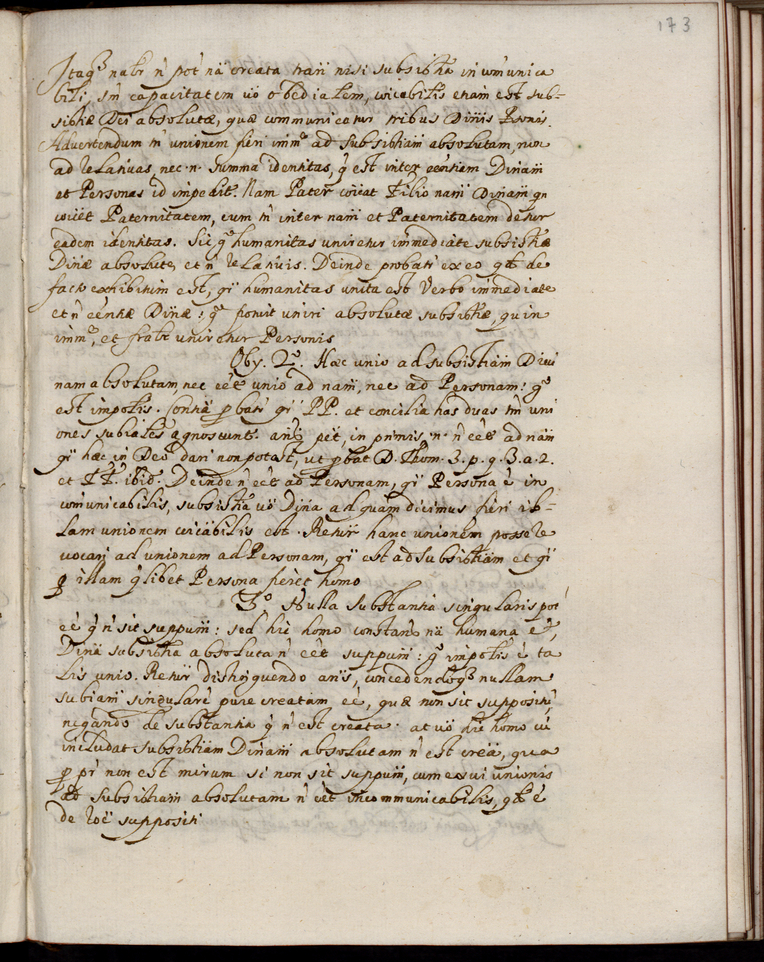 173
Itaq̃ nalr ñ pot nä creata trañi nisi subsistiä incom̃unica
bili, sm̃ capacitatem uö obedialem, coicabilis etiam est sub-
sistiæ Dei absolutæ, quæ communicatur tribus Diuis Psonis.
Aduertendum tñ unionem fieri imm̃e ad subsistiam̃ absolutam, non
ad relatiuas, nec .n. summa identitas, q̃ est inter eentiam Diuam̃
et Personas id impedit. Nam Pater coicat Filio nam̃ Diuam̃ qn
coicet Paternitatem, cum tñ inter nam̃ et Paternitatem detur
eadem identitas. Sic q̃ humanitas uniretur immediate subsistiæ
Diuæ absolute, et ñ relatiuis. Deinde probatr ex eo qđ de
facto exhibitum est, qï humanitas unita est Verbo immediate
et ñ eentiæ Diuæ: q̃ poterit uniri absolutæ subsistiæ, quin
imm̃e, et fratr uniretur Personis
Obÿ. 2º. Hæc unio ad subsistiam̃ Diui
nam absolutam, nec eët unio ad nam̃, nec ad Personam: q̃
est impolis. Contiä pbatr qï PP. et concilia has duas tm̃ uni
ones subiales agnoscunt. ans pët, in primis .n. ñ eët ad nam̃
qï hæc in Deo dari non potest, ut pbat D. Thom. 3. p. q. 3. a. 2.
et TT. ibid. Deinde ñ eët ad Personam, qï Persona ë in
com̃unicabilis, subsistiä uö Diua ad quam dicimus fieri il-
lam unionem coicabilis est. Retur hanc unionem posse re
uocari ad unionem ad Personam, qï est ad subsistiam̃ et qï
p illam q̃libet Persona fieret homo
3º Nulla substantia singularis pot
eë q̃ ñ sit suppum̃: sed hic homo constans nä humana ë,
Diuä subsistiä absoluta ñ eët suppum̃: q̃ impolis ë ta
lis unio. Retur distinguendo ans, concedendoq̃ nullam
subiam̃ singularë pure creatam eë, quæ non sit suppositü,
negando de substantia q̃ ñ est creata. at uö hic homo cü
includat subsistiam̃ Diuam̃ absolutam ñ est creä, qua
p pr̃ non est mirum si non sit suppum̃, cum ex ui unionis
ad subsistiam̃ absolutam ñ sit incommunicabilis, qđ ë
de roë suppositi